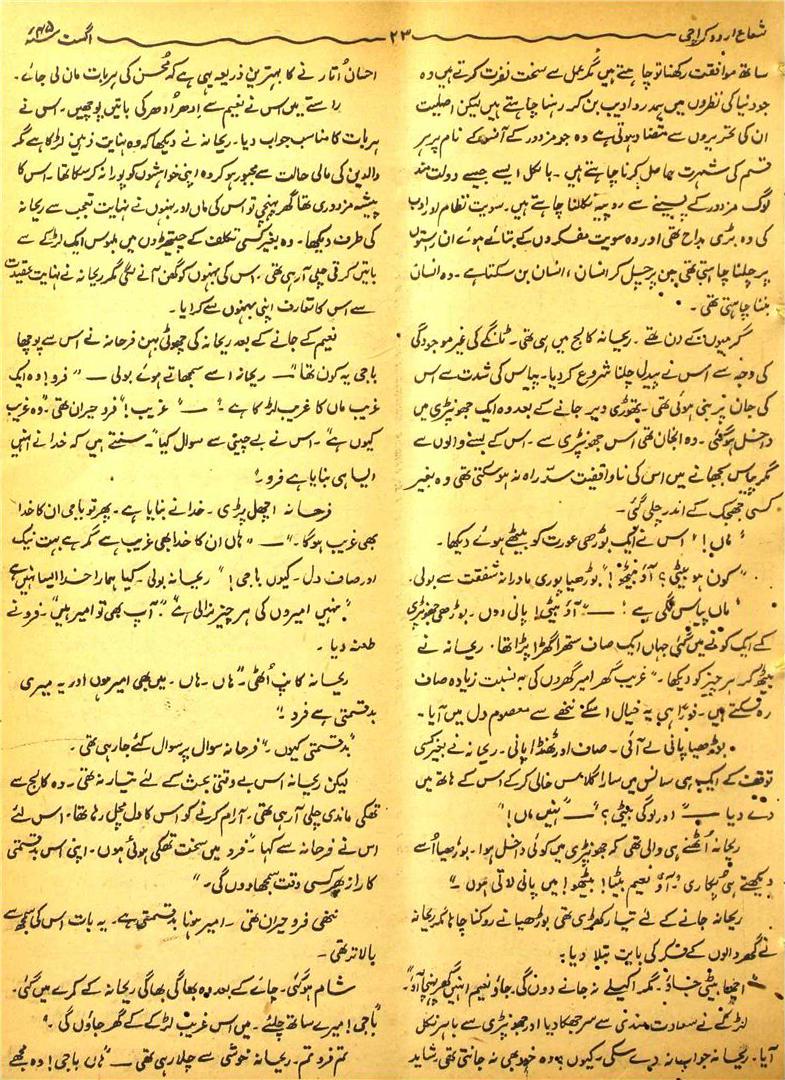 شعاع اردو کراچی
۲۳
اگست ۴۵ء
ساتھ موافقت رکھنا تو چاہتے ہیں مگر عمل سے سخت نفرت کرتے ہیں وہ
جو دنیا کی نظروں میں ہمدرد ادیب بن کر رہنا چاہتے ہیں لیکن اصلیت
ان کی تحریروں سے متضاد ہوتی ہے وہ جو مزدور کے آنسو کے نام پر ہر
قسم کی شہرت حاصل کرنا چاہتے ہیں ۔ بالکل ایسے جیسے دولت مند
لوگ مزدور کے پسینے سے روپیہ نکالنا چاہتے ہیں۔ سویت نظام اور ادب
کی وہ بڑی مداح تھی اور وہ سویت مفکروں کے بتائے ہوئے ان رستوں
پر چلنا چاہتی تھی جن پر چل کر انسان ، انسان بن سکتا ہے ۔ وہ انسان
بننا چاہتی تھی ۔
گرمیوں کے دن تھے ۔ ریحانہ کالج میں ہی تھی ۔ ٹانگے کی غیر موجودگی
کی وجہ سے اس نے پیدل چلنا شروع کر دیا ۔ پیاس کی شدت سے اس
کی جان پر بنی ہوئی تھی ۔ تھوڑی دیر جانے کے بعد وہ ایک جھونپڑی میں
داخل ہو گئی ۔ وہ انجان تھی اس جھونپڑی سے ۔ اس کے بسنے والوں سے
مگر پیاس بجھانے میں اس کی ناواقفیت سدِّ راہ نہ ہو سکتی تھی وہ بغیر
کسی جھجک کے اندر چلی گئی ۔
"ماں !" اس نے ایک بوڑھی عورت کو بیٹھے ہوئے دیکھا ۔
"کون ہو بیٹی ؟ آؤ بیٹھو !" بوڑھیا پوری مادرانہ شفقت سے بولی ۔
"ماں پیاس لگی ہے !" ــــ "آؤ بیٹھو! پانی دوں ۔ بوڑھی جھونپڑی
کے ایک کونے میں گئی جہاں ایک صاف ستھرا گھڑا پڑا تھا ۔ ریحانہ نے
بیٹھ کر ہر چیز کو دیکھا ۔ "غریب گھر امیر گھروں کی بہ نسبت زیادہ صاف
رہ سکتے ہیں ۔ فوراً ہی یہ خیال اسکے ننھے سے معصوم دل میں آیا ۔
بوڑھیا پانی لے آئی ۔ صاف اور ٹھنڈا پانی ۔ ریحانہ نے بغیر کسی
توقف کے ایک ہی سانس میں سارا گلاس خالی کر کے اس کے ہاتھ میں
دے دیا ــــ "اور لوگی بیٹی ؟" ــــ "نہیں ماں !"
ریحانہ اُٹھنے ہی والی تھی کہ جھونپڑی میں کوئی داخل ہوا ۔ بوڑھیا اُسے
دیکھتے ہی پکاری "آؤ نعیم بیٹا! بیٹھو! میں پانی لاتی ہوں ۔"
ریحانہ جانے کے لئے تیار کھڑی تھی بوڑھیا نے روکنا چاہا مگر ریحانہ
نے گھر والوں کے فکر کی بابت بتلا دیا ۔
"اچھا بیٹی جاؤ ۔ مگر اکیلے نہ جانے دوں گی ۔ جاؤ نعیم انہیں گھر پہنچا آؤ"۔
لڑکے نے سعادت مندی سے سر جھکا دیا اور جھونپڑی سے باہر نکل
آیا ۔ ریحانہ جواب نہ دے سکی ۔ کیوں ؟ وہ خود بھی نہ جانتی تھی شاید
احسان اُتارنے کا بہترین ذریعہ یہی ہے کہ محسن کی ہر بات مان لی جائے ۔
راستے میں اس نے نعیم سے اِدھر اُدھر کی باتیں پوچھیں ۔ اس نے
ہر بات کا مناسب جواب دیا ۔ ریحانہ نے دیکھا کہ وہ نہایت ذہین لڑکا ہے مگر
والدین کی مالی حالت سے مجبور ہو کر وہ اپنی خواہشوں کو پورا نہ کر سکا تھا ۔ اس کا
پیشہ مزدوری تھا گھر پہنچی تو اس کی ماں اور بہنوں نے نہایت تعجب سے ریحانہ
کی طرف دیکھا ۔ وہ بغیر کسی تکلف کے چیتھڑوں میں ملبوس ایک لڑکے سے
باتیں کرتی چلی آ رہی تھی ۔ اس کی بہنوں کو گھن آنے لگی مگر ریحانہ نے نہایت عقیدت
سے اس کا تعارف اپنی بہنوں سے کرایا ۔
نعیم کے جانے کے بعد ریحانہ کی چھوٹی بہن فرحانہ نے اس سے پوچھا
باجی یہ کون تھا" ــــ ریحانہ اسے سمجھاتے ہوئے بولی ــــ "فرو! وہ ایک
غریب ماں کا غریب لڑکا ہے ۔" ــــ "غریب !" فرو حیران تھی ۔ "وہ غریب
کیوں ہے" ۔ اس نے بے چینی سے سوال کیا ۔ "سنتے ہیں کہ خدا نے انہیں
ایسا ہی بنایا ہے فرو !"
فرحانہ اچھل پڑی ۔ خدا نے بنایا ہے ۔ پھر تو باجی ان کا خدا
بھی غریب ہوگا ۔" ــــ "ہاں ان کا خدا بھی غریب ہے مگر ہے بہت نیک
اور صاف دل ۔ کیوں باجی !" ریحانہ بولی ۔ کیا ہمارا خدا ایسا نہیں ہے
"نہیں امیروں کی ہر چیز نرالی ہے" ۔ "آپ بھی تو امیر ہیں" ۔ فرو نے
طعنہ دیا ۔
ریحانہ کانپ اُٹھی ۔ "ہاں ۔ ہاں ۔ میں بھی امیر ہوں اور یہ میری
بد قسمتی ہے فرو ۔"
"بد قسمتی کیوں ۔" فرحانہ سوال پر سوال کئے جا رہی تھی ۔
لیکن ریحانہ اس بے وقتی بحث کے لئے تیار نہ تھی ۔ وہ کالج سے
تھکی ماندی چلی آ رہی تھی ۔ آرام کرنے کو اس کا دل مچل رہا تھا ۔ اس لئے
اس نے فرحانہ سے کہا "فرو میں سخت تھکی ہوئی ہوں ۔ اپنی اس بد قسمتی
کا راز پھر کسی وقت سمجھا دوں گی ۔"
ننھی فرو حیران تھی ۔ امیر ہونا بد قسمتی ہے ۔ یہ بات اس کی سمجھ سے
بالاتر تھی ۔
شام ہو گئی ۔ چائے کے بعد وہ بھاگی بھاگی ریحانہ کے کمرے میں گئی ۔
"باجی! میرے ساتھ چلئے ۔ میں اس غریب لڑکے کے گھر جاؤں گی ۔"
تم فرو تم ۔ ریحانہ خوشی سے چلا رہی تھی ــــ "ہاں باجی! وہ مجھے